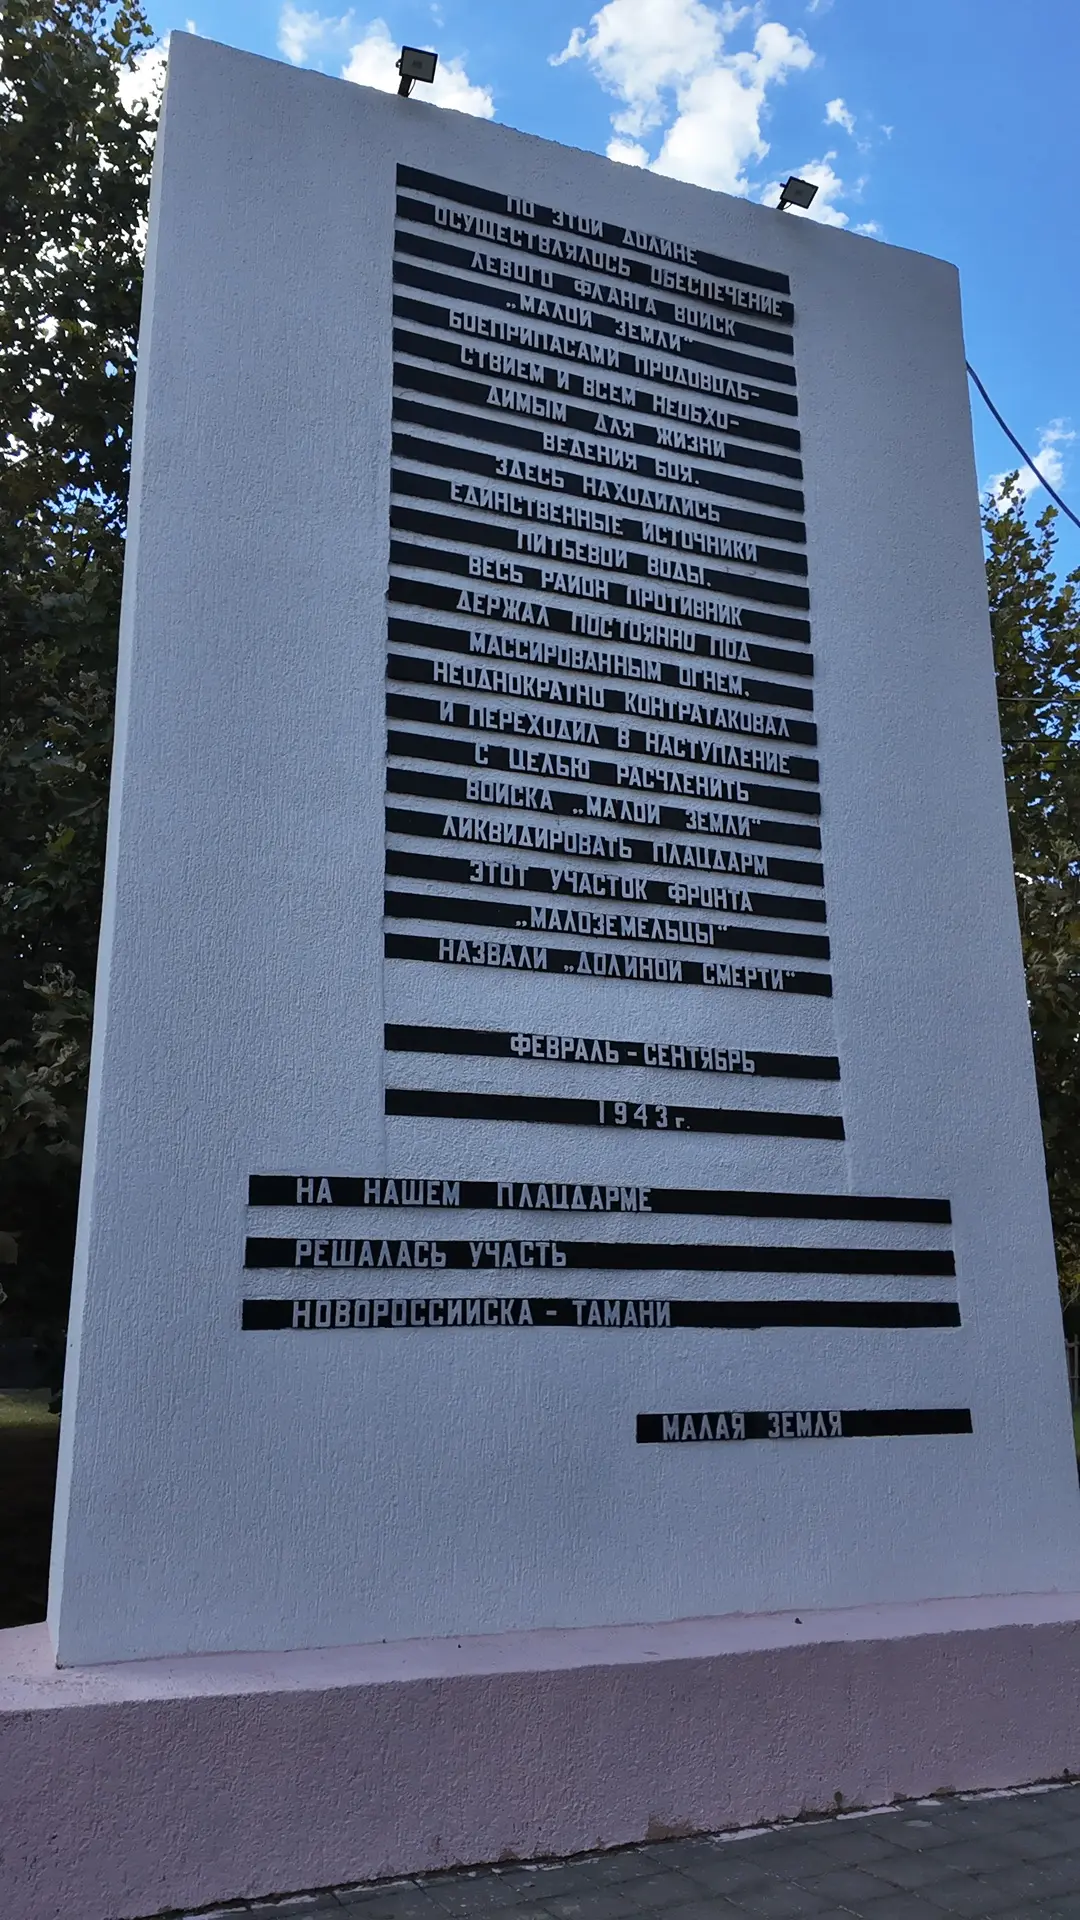 ПО ЭТОЙ ДОЛИНЕ
ОСУЩЕСТВЛЯЛОСЬ ОБЕСПЕЧЕНИЕ
ЛЕВОГО ФЛАНГА ВОЙСК
„МАЛОЙ ЗЕМЛИ“
БОЕПРИПАСАМИ ПРОДОВОЛЬ-
СТВИЕМ И ВСЕМ НЕОБХО-
ДИМЫМ ДЛЯ ЖИЗНИ
ВЕДЕНИЯ БОЯ.
ЗДЕСЬ НАХОДИЛИСЬ
ЕДИНСТВЕННЫЕ ИСТОЧНИКИ
ПИТЬЕВОЙ ВОДЫ.
ВЕСЬ РАЙОН ПРОТИВНИК
ДЕРЖАЛ ПОСТОЯННО ПОД
МАССИРОВАННЫМ ОГНЕМ.
НЕОДНОКРАТНО КОНТРАТАКОВАЛ
И ПЕРЕХОДИЛ В НАСТУПЛЕНИЕ
С ЦЕЛЬЮ РАСЧЛЕНИТЬ
ВОЙСКА „МАЛОЙ ЗЕМЛИ“
ЛИКВИДИРОВАТЬ ПЛАЦДАРМ
ЭТОТ УЧАСТОК ФРОНТА
„МАЛОЗЕМЕЛЬЦЫ“
НАЗВАЛИ „ДОЛИНОЙ СМЕРТИ“
ФЕВРАЛЬ - СЕНТЯБРЬ
1943 г.
НА НАШЕМ ПЛАЦДАРМЕ
РЕШАЛАСЬ УЧАСТЬ
НОВОРОССИЙСКА - ТАМАНИ
МАЛАЯ ЗЕМЛЯ